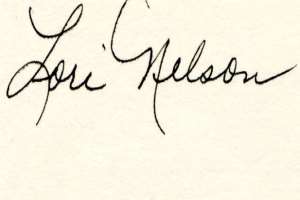 Lori Nelson